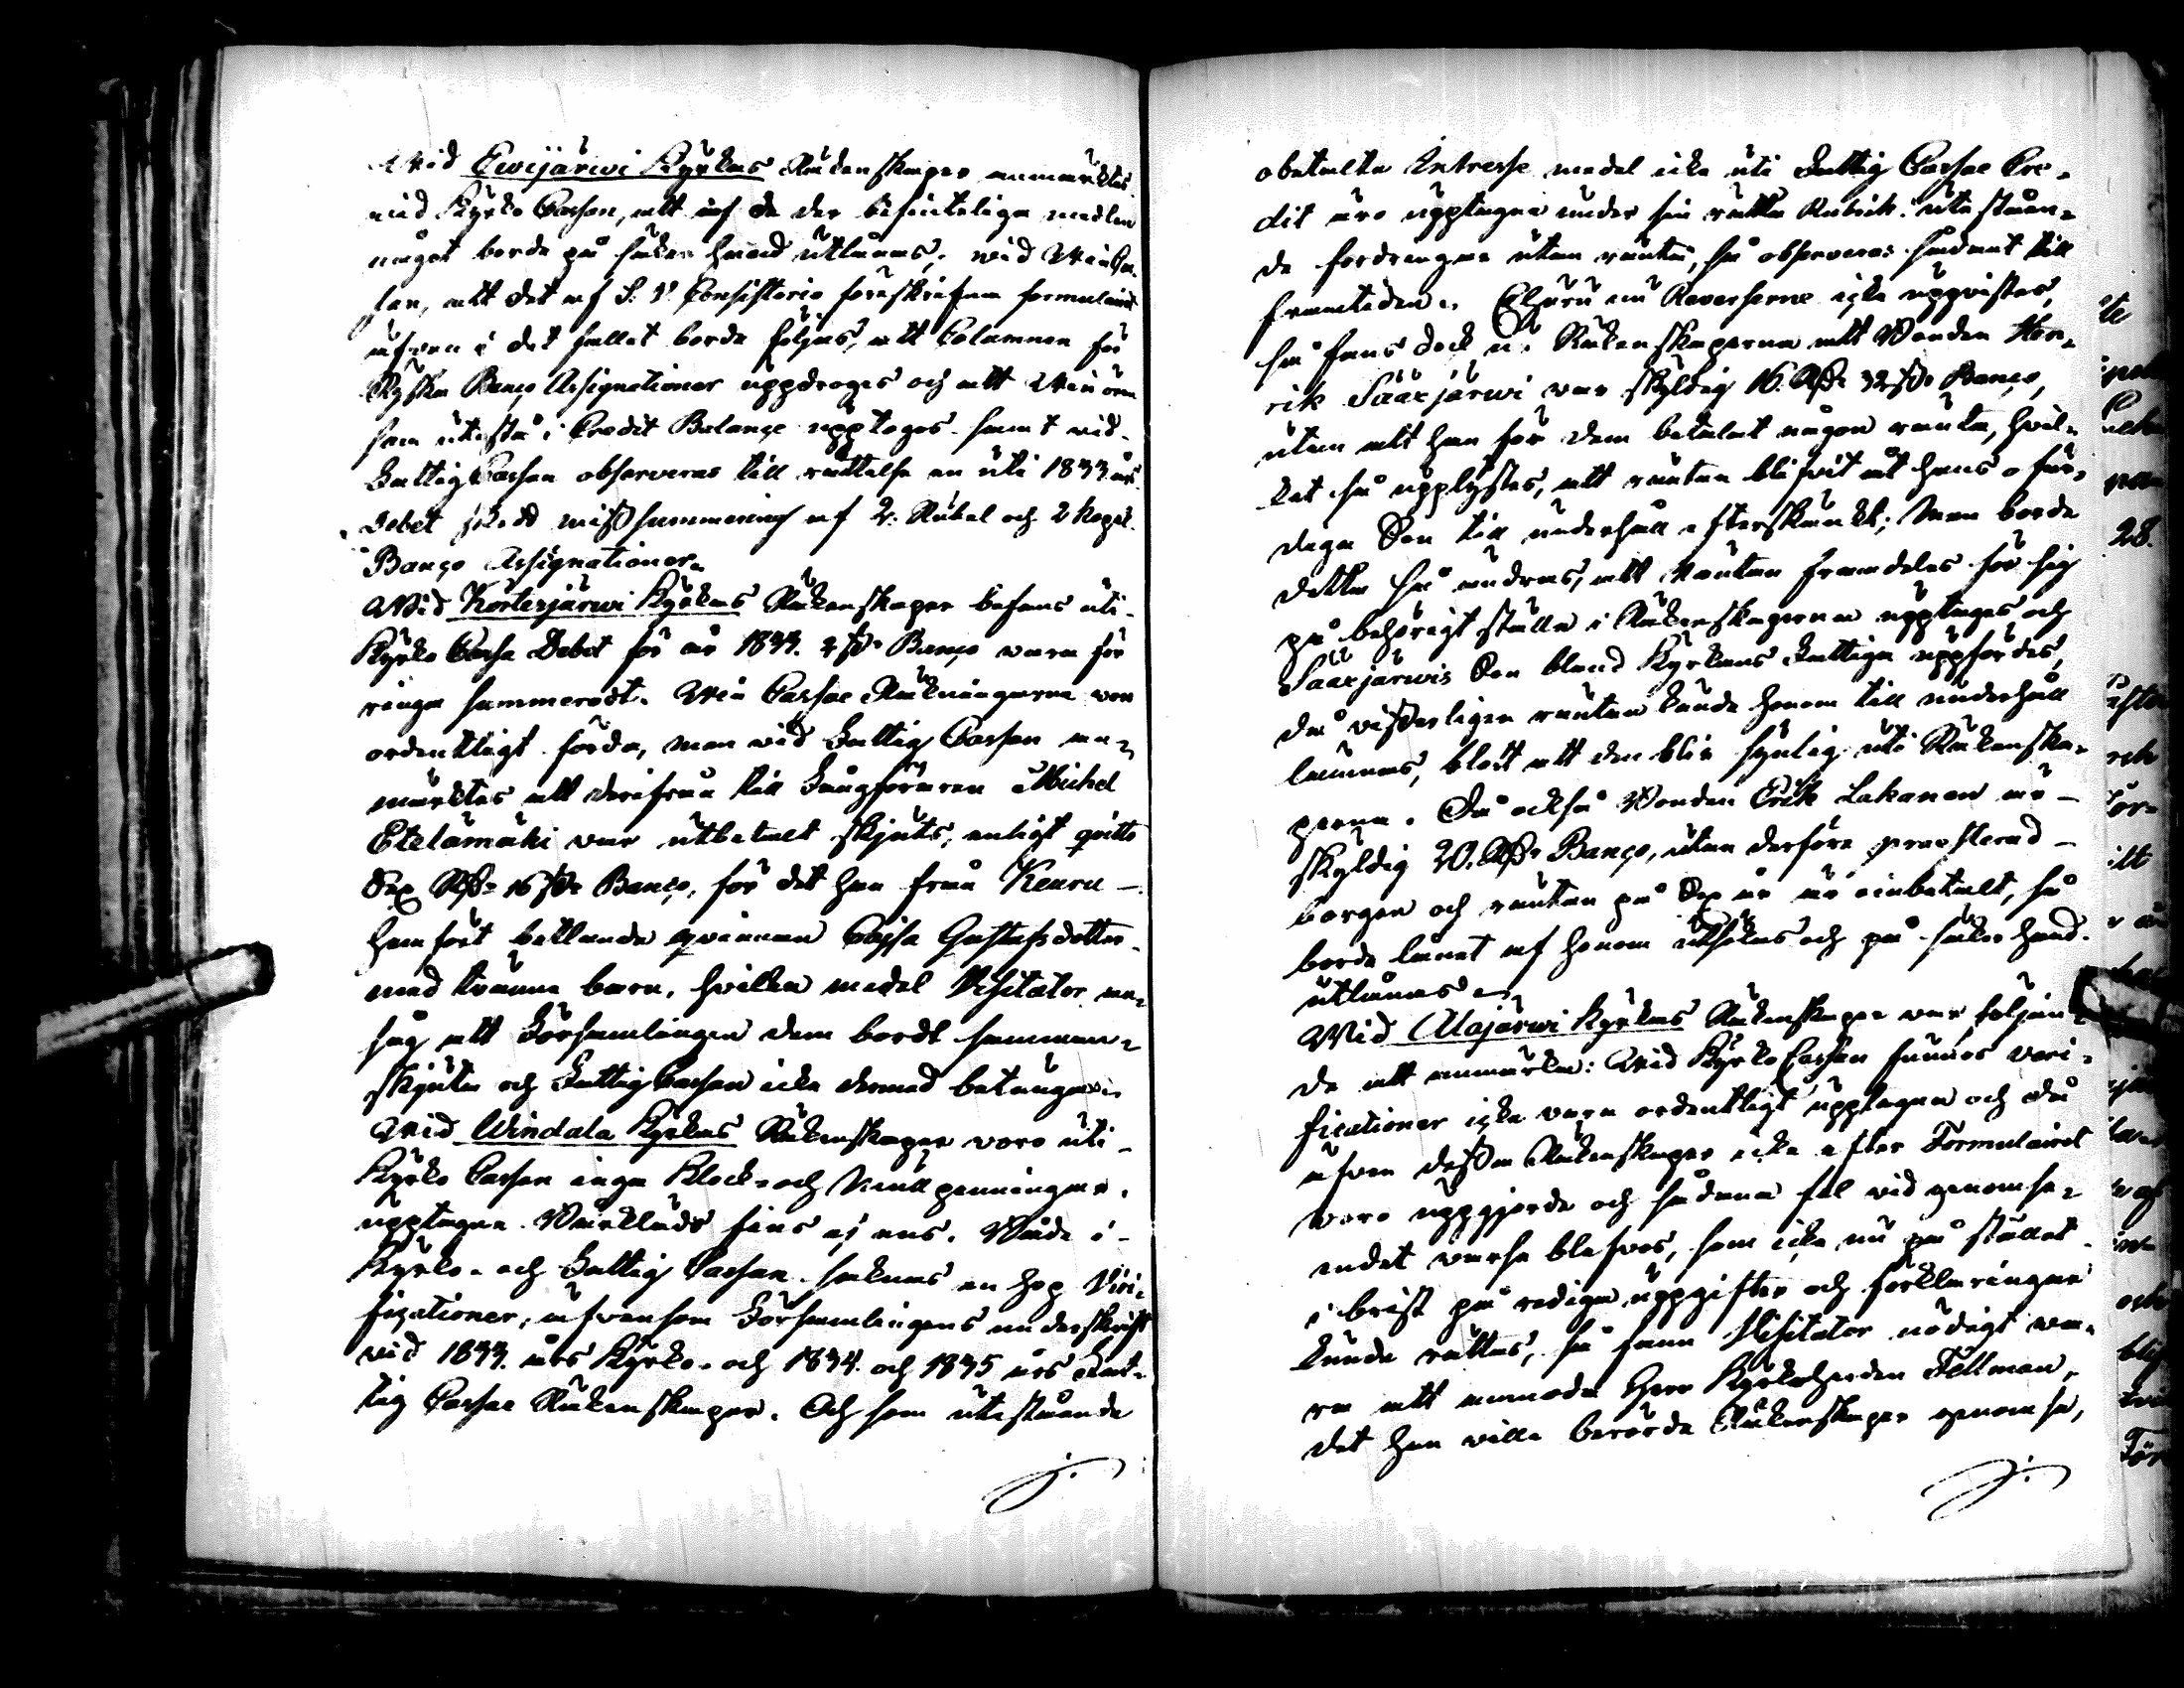 Wid Ewijärwi Kyrkas Räkenskaper anmärktes
vid Kyrko Cassan, att af de der befinteliga medlen
något borde på säker hand utlånas; vid Winka-
san, att det af S. V. Consistorio föreskrifna formulairet
äfven i det fallet borde följas, att Columnen för
Ryska Banco Assignationer uppdroges och att Win öra
som utestå i Credit Balançe upptoges samt vid
Fattig Cassan observeras till rättelse en uti 1833 års
Debet skedd missummering af 2. Rubel och 2 Kopek
Banco Assignationer.
Wid Kortesjärwi Kyrkas Räkenskaper befans uti
Kyrko Cassa Debet för år 1833. 4 sk. Banco vara för
ringa summeradt. Win Cassae Räkningarna voro
ordentligt förda, men vid Fattig Cassan an-
märktes att derifrån till Fångföraren Michel
Etelämäki var utbetalt skjuts, enligt qvitto
Sex Rd. 16 sk. Banco, för det han från Keuru
hemfört bettlande qvinnan Cajsa Gustafsdotter
med tvänne barn, hvilka medel Visitator an-
såg att Församlingen dem bordt samman-
skjuta och Fattig Cassan icke dermed betungas.
Wid Windala Kyrkas Räkenskaper voro uti
Kyrko Cassan inga Klock- och penningar
upptagne. Bårkläde fins ej ens. Både i
Kyrko- och Fattig Cassan saknas en hop Veri-
fizationer, äfvensom Församlingens underskrift
vid 1833. års Kyrko- och 1834. och 1835 års Fat-
tig Cassae Räkenskaper. Och som utestående
j.
obetalte Intresse medel icke uti Fattig Cassae Cre-
dit äro upptagne under sin rätta Rubrik: uteståen-
de fordringar utan ränta, så observeras sådant till
framtiden. Ehuru nu Reverserne icke uppvistes,
så fans dock ur Räkenskaperna att Bonden Hen-
rik Säärjärwi var skyldig 16. Rd. 32 sk. Banco,
utan att han för dem betalat någon ränta, hvil-
ket så upplystes, att räntan blifvit åt hans ofär-
diga Son till underhåll efterskänkt; Men borde
detta så ändras, att Räntan framdeles för sig
på behörigt ställe i Räkenskaperna upptages och
Säärjärwis Son bland Kyrkans Fattiga uppfördes,
då visserligen räntan kunde honom till underhåll
lämnas, blott att den blir synlig uti Räkenska-
perna. Då också Bonden Erik Lakanen är
skyldig 20. Rd. Banco, utan derföre praesterad
borgen och räntan på Sex år är oinbetalt, så
borde lånet af honom utsökas och på säker hand
utlånas.
Wid Alajärwi Kyrkas Räkenskaper var följan-
de att anmärka: Wid Kyrko Cassan funnos veri-
ficationer icke vara ordentligt upptagna och då
äfven dessa Räkenskaper icke efter Formulairet
voro uppgjorda och sådana fel vid genomse-
endet varse blefvos, som icke nu på stället
i brist på redige uppgifter och förklaringar
kunde rättas, så fann Visitator nödigt va-
ra att anmoda Herr Kyrkoherden Fellman,
det han ville berörde Räkenskaper genomse,
j.